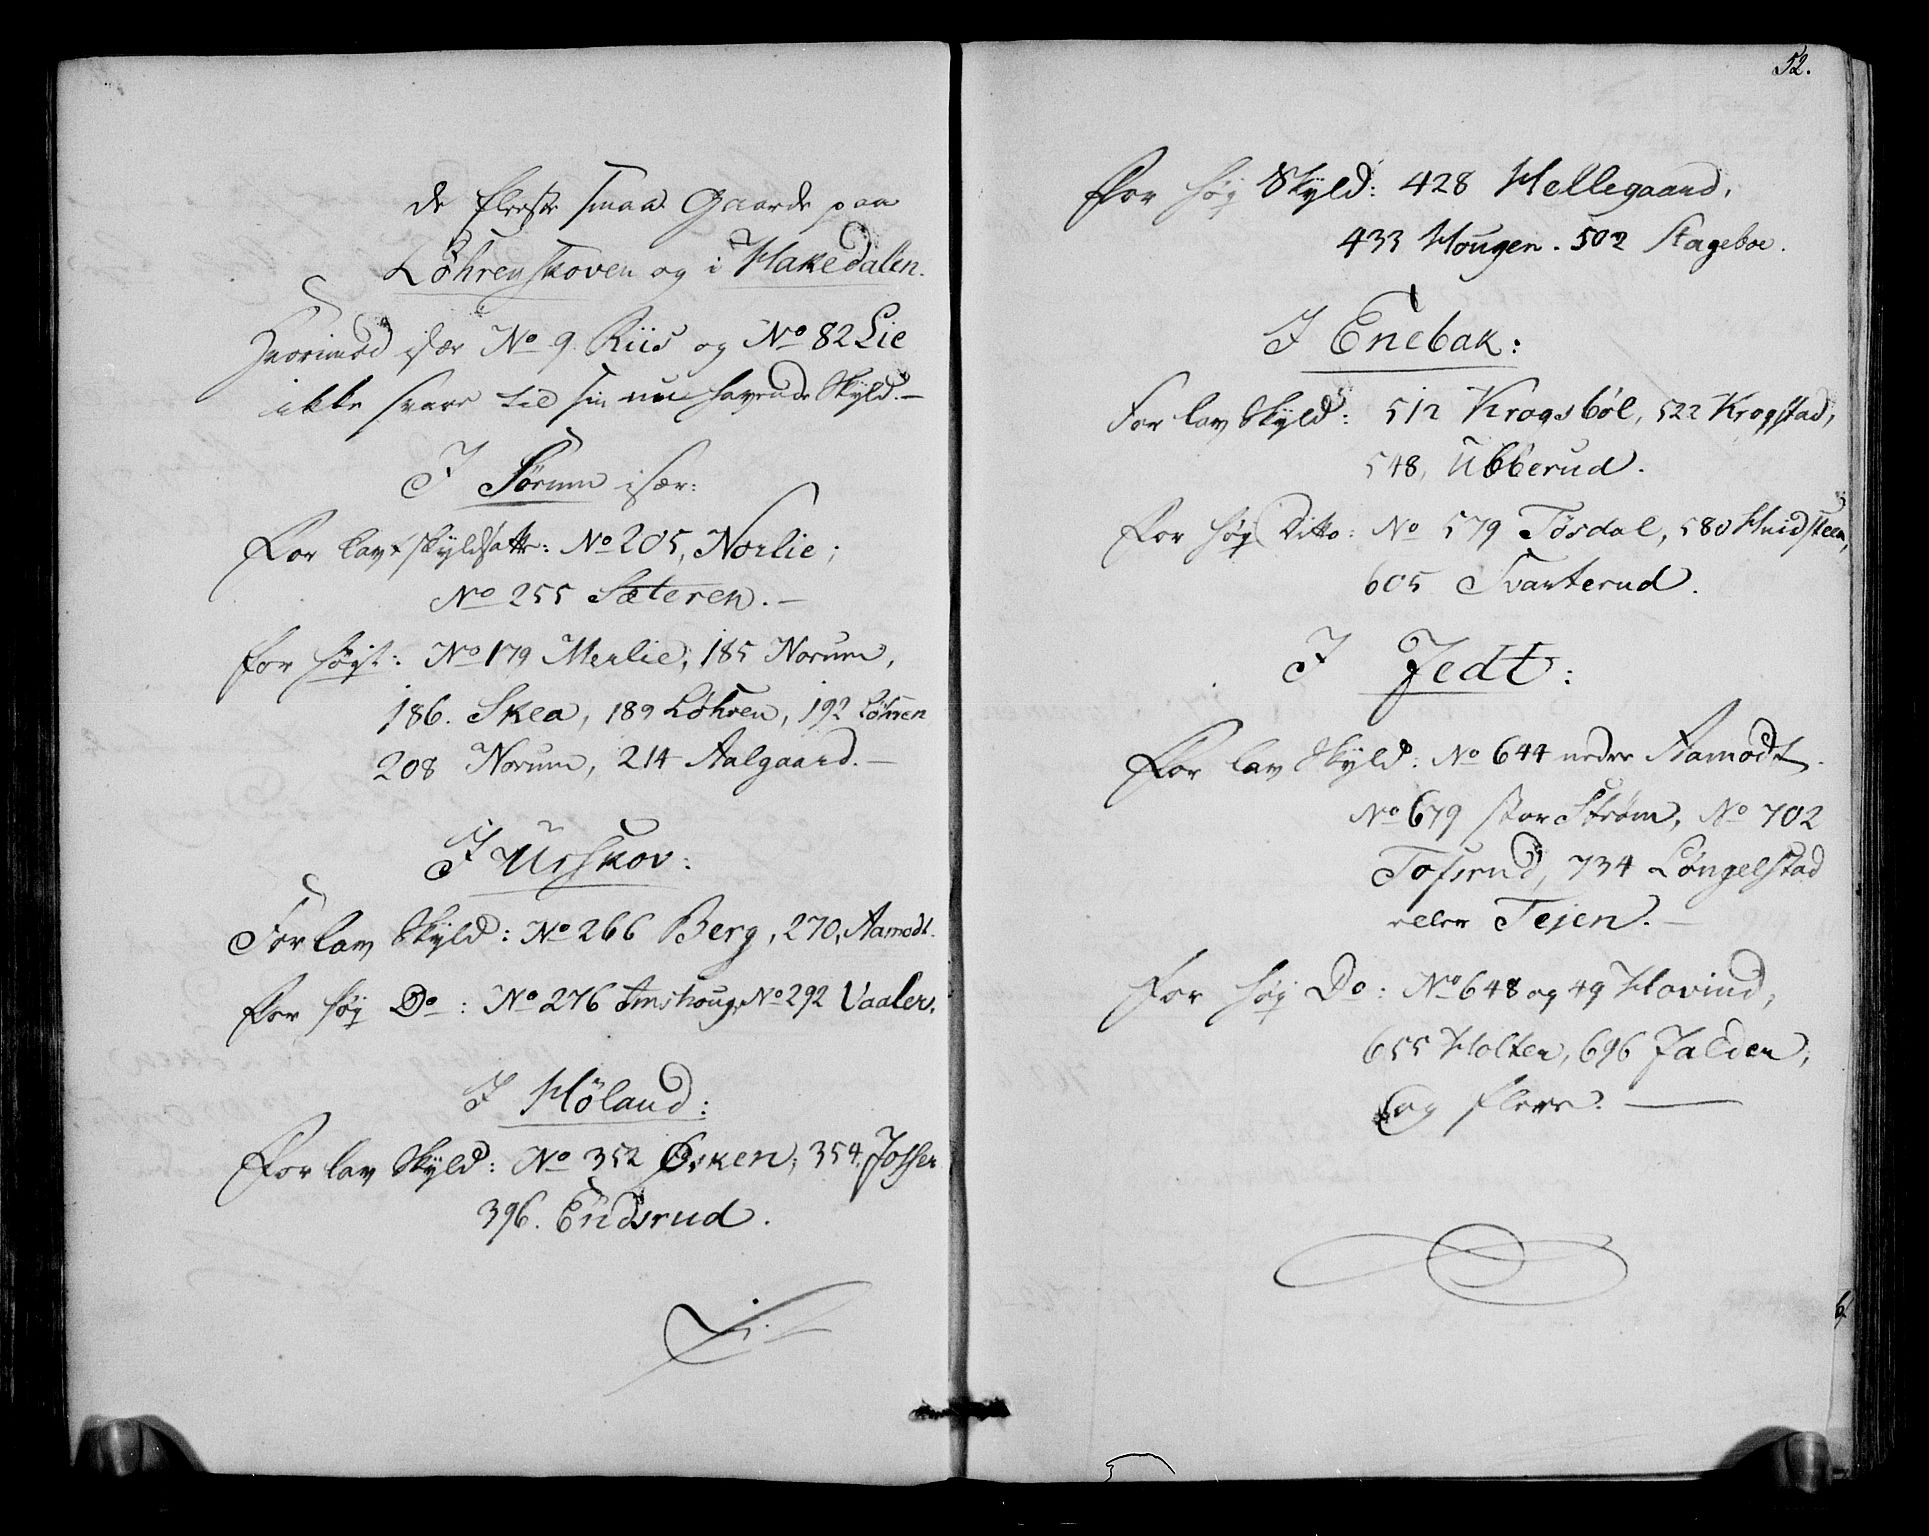 de fleeste smaa Gaarde paa
Löhrenskoven og i Hakedalen.
Hvorimod især No 9. Riis og No 82 Lie
ikke svare til sin nu havende Skyld. —
I Sörum især:
For lavt skyldsatte: No 205, Norlie;
No 255 Sæteren. —
for høyt: No 179 Merlie, 185 Norum,
186. Skea, 189 Löhren, 192 Löhren
208 Norum, 214 Aalgaard. —
I Urskov:
For lav Skyld: No 266 Berg, 270, Aamodt.
For høy Do: No 276 Amshoug, No 292 Vaaler.
I Höland:
For lav Skyld: No 352 Ösken, 354. Josser
396. Endsrud.
52.
For høy Skyld: 428 Hellegaard,
433 Hougen. 502 Stageboe.
I Enebak:
For lav Skyld: 512 Krogsböl, 522 Krogstad,
548, Ubberud.
For høy Ditto: No 579 Tösdal, 580 Hvidsteen,
605 Svarterud.
I Fedt:
For lav Skyld: No 644 nedre Aamodt.
No 679 stor Ström, No 702
Tofsrud, 734 Löngelstad
eller Tejen. —
For høy Do: No 648 og 49 Hovind,
655 Holten, 696 Jalden,
og flere. —